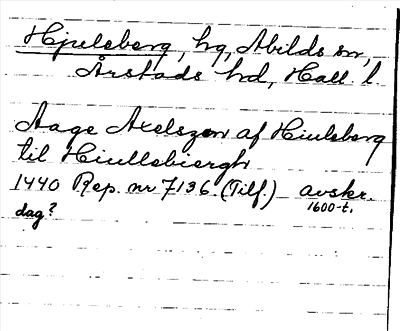 Hjulsberg, hg, Abilds sn,
Årstads hd, Hall. l.
Aage Axelszøn af Hiulsberg
til Hiullsbiergh
1440 Rep. nr 7136 (Tilf.) avskr.
dag? 1600-t.